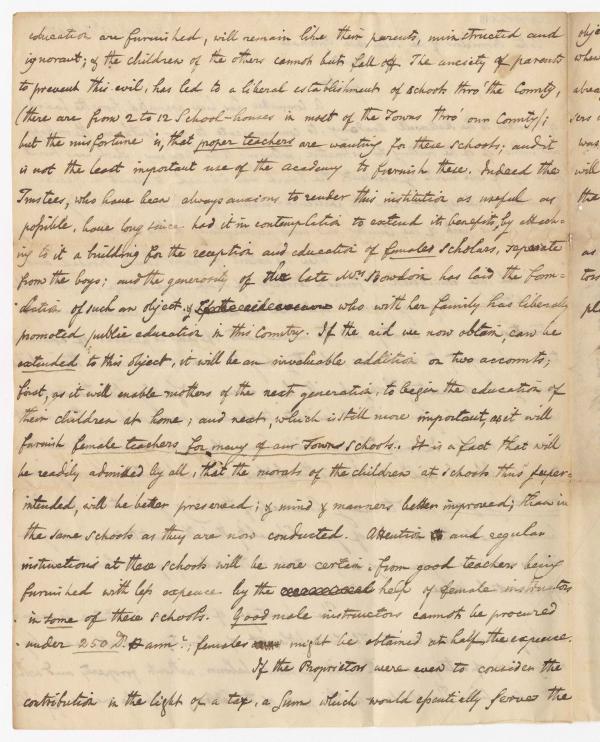 education are furnished, will remain like their parents, uninstructed and
ignorant; & the children of the others cannot but fall off. The anxiety of parents
to prevent this evil, has led to a liberal establishment of schools thro' the County,
(there are from 2 to 12 School-houses in most of the Towns thro' our County);
but the misfortune is, that proper teachers are wanting for these schools; and it
is not the least important use of the academy to furnish these. Indeed the
Trustees, who have been always anxious to render this institution as useful as
possible, have long since had it in contemplation to extend its benefits, by attach-
ing to it a building for the reception and education of females scholars, separate
from the boys; and the generosity of the late Mrs Bowdoin has laid the foun-
dation of such an object, who with her family has liberally
promoted public education in this Country. If the aid we now obtain, can be
extended to this object, it will be an invaluable addition on two accounts;
first, as it will enable mothers of the next generation, to begin the education of
their children at home; and next, which is still more important, as it will
furnish female teachers for many of our Towns schools. It is a fact that will
be readily admitted by all, that the morals of the children at schools thus super-
intended, will be better preserved; & mind & manners better improved; than in
the same schools as they are now conducted. Attention and regular
instructions at these schools will be more certain, from good teachers being
furnished with less expence by the help of female instructors
in some of these schools. Good male instructors cannot be procured
under 250 D. ann.; females might be obtained at half the expence.
If the Proprietors were even to consider the
contribution in the light of a tax, a sum which would essentially serve the
obje
when
alrea
was
will
the
as
tors
pl